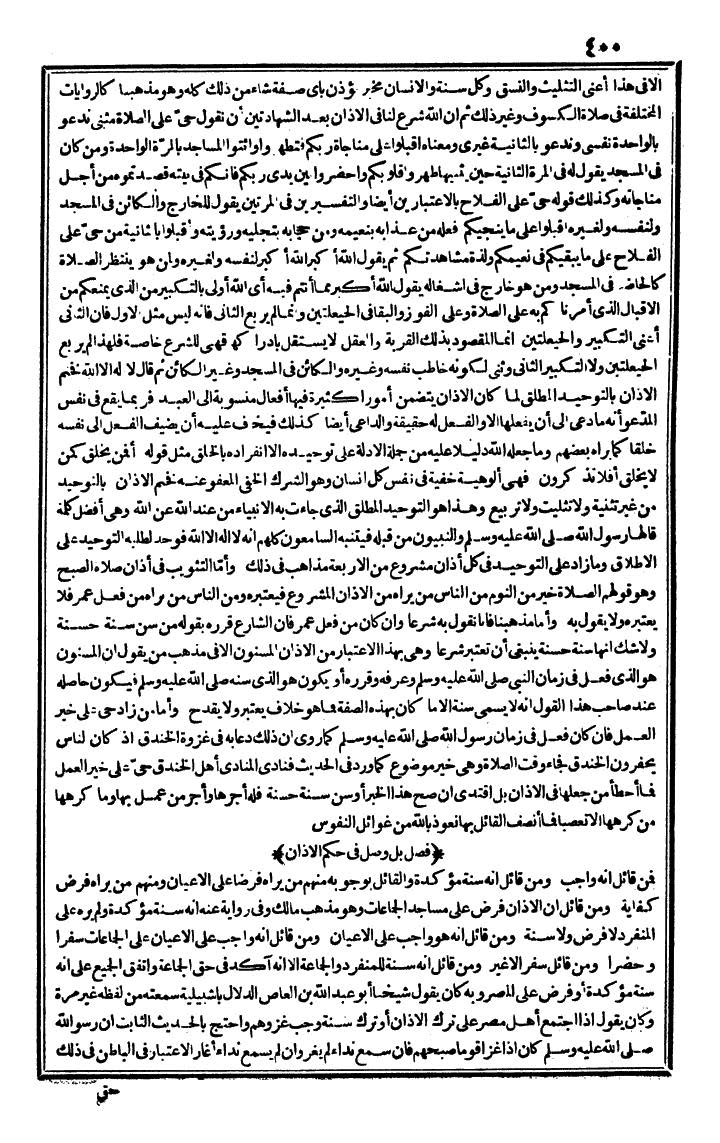 ٤٠٠
الافى هذا أعنى التثليث والفسق وكل سنة والانسان مخير يؤذن بأى صفة شاء من ذلك كله وهو مذهبنا كالروايات
المختلفة فى صلاة الكسوف وغير ذلك ثم ان الله شرع لنا فى الاذان بعد الشهادتين أن نقول حىّ على الصلاة مثنى ندعو
بالواحدة نفسى وندعو بالثانية غيرى ومعناه اقبلوا على مناجاة ربكم فتطهروا وائتوا المساجد بالمرّة الواحدة ومن كان
فى المسجد يقول له فى المرة الثانية حين يثنيها طهروا قلوبكم واحضروا بين يدى ربكم فانكم فى بيته قصدتموه من أجل
مناجاته وكذلك قوله حىّ على الفلاح بالاعتبارين أيضا والتفسيرين فى المرتين يقول للخارج والكائن فى المسجد
ولنفسه ولغيره اقبلوا على ما ينجيكم فعله من عذابه بنعيمه ومن حجابه بتجليه ورؤيته وأقبلوا بالثانية من حىّ على
الفلاح على ما يبقيكم فى نعيمكم ولذة مشاهدتكم ثم يقول الله أكبر الله أكبر لنفسه ولغيره ولمن هو ينتظر الصلاة
كالحاضر فى المسجد ومن هو خارج فى اشغاله يقول الله أكبر مما أنتم فيه أى الله أولى بالتكبير من الذى يمنعكم من
الاقبال الذى أمرناكم به على الصلاة وعلى الفوز والبقا فى الحيعلتين وانما لم يربع الثانى فانه ليس مثل الاول فان الثانى
أعنى التكبير والحيعلتين انما المقصود بذلك القربة والعقل لا يستقل بادراكها فهى للشرع خاصة فلهذا لم يربع
الحيعلتين ولا التكبير الثانى وثنى لكونه خاطب نفسه وغيره والكائن فى المسجد وغير الكائن ثم قال لا اله الا الله فختم
الاذان بالتوحيد المطلق لما كان الاذان يتضمن أمورا كثيرة فيها أفعال منسوبة الى العبد فربما يقع فى نفس
المدعوّ أنه ما دعى الى أن يفعلها الا والفعل له حقيقة والداعى أيضا كذلك فيخف عليه أن يضيف الفعل الى نفسه
خلقا كما يراه بعضهم وما جعله الله دليلا عليه من جملة الادلة على توحيده الا انفراده بالخلق مثل قوله أفمن يخلق كمن
لا يخلق أفلا تذكرون فهى ألوهية خفية فى نفس كل انسان وهو الشرك الخفى المعفو عنه فختم الاذان بالتوحيد
من غير تثنية ولا تثليث ولا تربيع وهذا هو التوحيد المطلق الذى جاءت به الانبياء من عند الله عن الله وهى أفضل كلمة
قالها رسول الله صلى الله عليه وسلم والنبيون من قبله فيتنبه السامعون كلهم انه لا اله الا الله فوحد لطلبه التوحيد على
الاطلاق وما زاد على التوحيد فى كل أذان مشروع من الاربعة مذاهب فى ذلك وأمّا التثويب فى أذان صلاة الصبح
وهو قولهم الصلاة خير من النوم من الناس من يراه من الاذان المشروع فيعتبره ومن الناس من يراه من فعل عمر فلا
يعتبره ولا يقول به وأما مذهبنا فانا نقول به شرعا وان كان من فعل عمر فان الشارع قرره بقوله من سن سنة حسنة
ولا شك انها سنة حسنة ينبغى أن تعتبر شرعا وهى بهذا الاعتبار من الاذان المسنون الا فى مذهب من يقول ان المسنون
هو الذى فعل فى زمان النبى صلى الله عليه وسلم وعرفه وقرره أو يكون هو الذى سنه صلى الله عليه وسلم فيكون حاصله
عند صاحب هذا القول انه لا يسمى سنة الا ما كان بهذه الصفة فما هو خلاف يعتبر ولا يقدح وأما من زاد حى على خير
العمل فان كان فعل فى زمان رسول الله صلى الله عليه وسلم كما روى ان ذلك دعا به فى غزوة الخندق اذ كان الناس
يحفرون الخندق فجاء وقت الصلاة وهى خير موضوع كما ورد فى الحديث فنادى المنادى أهل الخندق حىّ على خير العمل
فما أخطأ من جعلها فى الاذان بل اقتدى ان صح هذا الخبر أو سن سنة حسنة فله أجرها وأجر من عمل بها وما كرهها
من كرهها الا تعصبا فما أنصف القائل بها نعوذ بالله من غوائل النفوس
﴿فصل بل وصل فى حكم الاذان﴾
فمن قائل انه واجب ومن قائل انه سنة مؤكدة والقائل بوجوبه منهم من يراه فرضا على الاعيان ومنهم من يراه فرض
كفاية ومن قائل ان الاذان فرض على مساجد الجماعات وهو مذهب مالك وفى رواية عنه انه سنة مؤكدة ولم يره على
المنفرد لا فرض ولا سنة ومن قائل انه هو واجب على الاعيان ومن قائل انه واجب على الاعيان على الجماعات سفرا
وحضرا ومن قائل سفرا لا غير ومن قائل انه سنة للمنفرد والجماعة الا انه آكد فى حق الجماعة واتفق الجميع على انه
سنة مؤكدة أو فرض على المصر وبه كان يقول شيخنا أبو عبد الله بن العاص الدلال باشبيلية سمعته من لفظه غير مرة
وكان يقول اذا اجتمع أهل مصر على ترك الاذان أو ترك سنة وجب غزوهم واحتج بالحديث الثابت ان رسول الله
صلى الله عليه وسلم كان اذا غزا قوما صبحهم فان سمع نداء لم يغر وان لم يسمع نداء أغار الاعتبار فى الباطن فى ذلك
حق